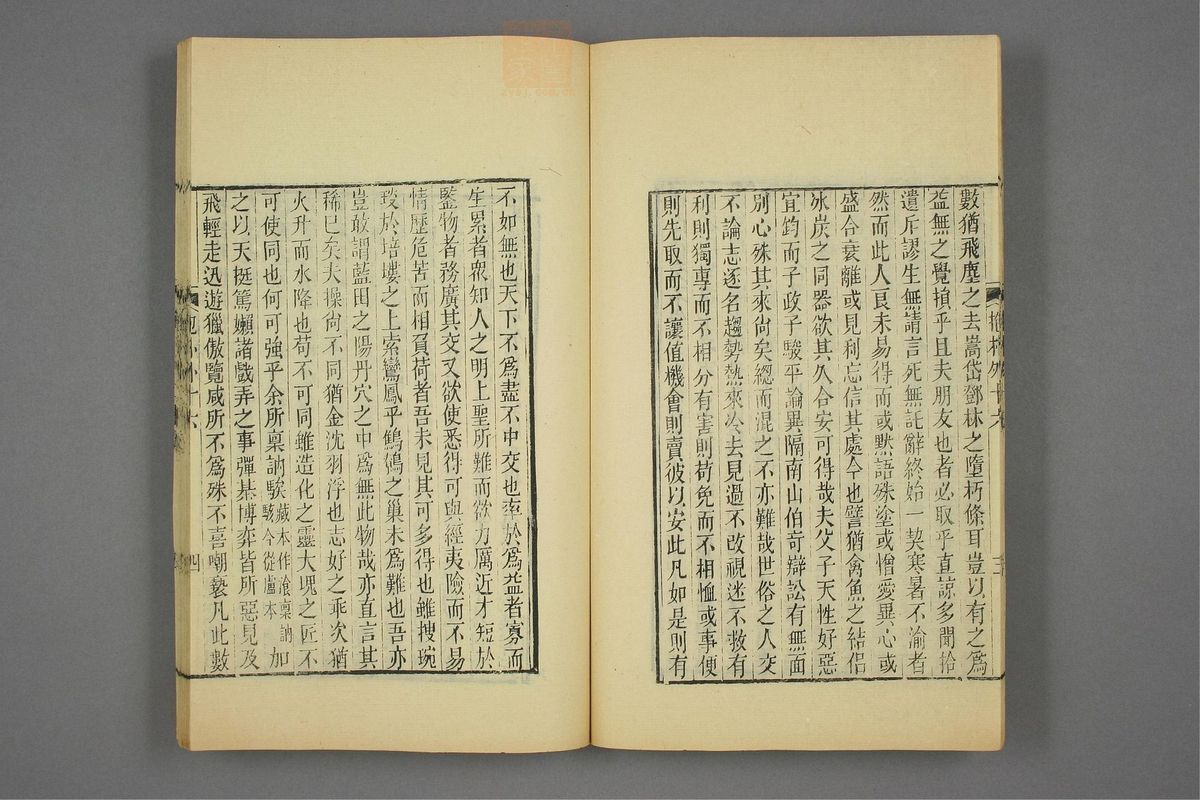 數猶飛塵之去嵩岱鄧林之墮朽條耳豈以有之爲
益無之覺損乎且夫朋友也者必取乎直諒多聞拾
遺斥謬生無請言死無託辭終始一契寒暑不渝者
然而此人良未易得而或默語殊塗或憎愛異心或
盛合衰離或見利忘信其處今也譬猶禽魚之結侶
冰炭之同器欲其久合安可得哉夫父子天性好惡
宜鈞而子政子駿平論異隔南山伯奇辯訟有無面
別心殊其來尚矣總而混之不亦難哉世俗之人交
不論志逐名趨勢熱來冷去見過不改視迷不救有
利則獨專而不相分有害則苟免而不相恤或事便
則先取而不讓值機會則賣彼以安此凡如是則有
抱朴外十六
三
不如無也天下不爲盡不中交也率於爲益者寡而
生累者衆知人之明上聖所難而欲力厲近才短於
鑒物者務廣其交又欲使悉得可與經夷險而不易
情歷危苦而相負荷者吾未見其可多得也雖搜琬
琰於培塿之上索鸞鳳乎鷦鷯之巢未爲難也吾亦
豈敢謂藍田之陽丹穴之中爲無此物哉亦直言其
稀已矣夫操尚不同猶金沈羽浮也志好之乖次猶
火升而水降也苟不可同雖造化之靈大塊之匠不
可使同也何可強乎余所稟訥騃藏本作滄稟訥駭今從盧本加
之以天挺篤嬾諸戲弄之事彈棊博弈皆所惡見及
飛輕走迅遊獵傲覽咸所不爲殊不喜嘲褻凡此數
抱朴外十六
四